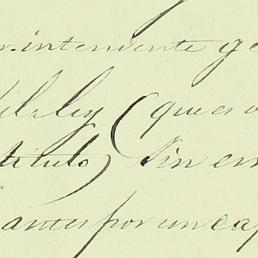 intendente ge
(que es
título) sin em
antes por un ca